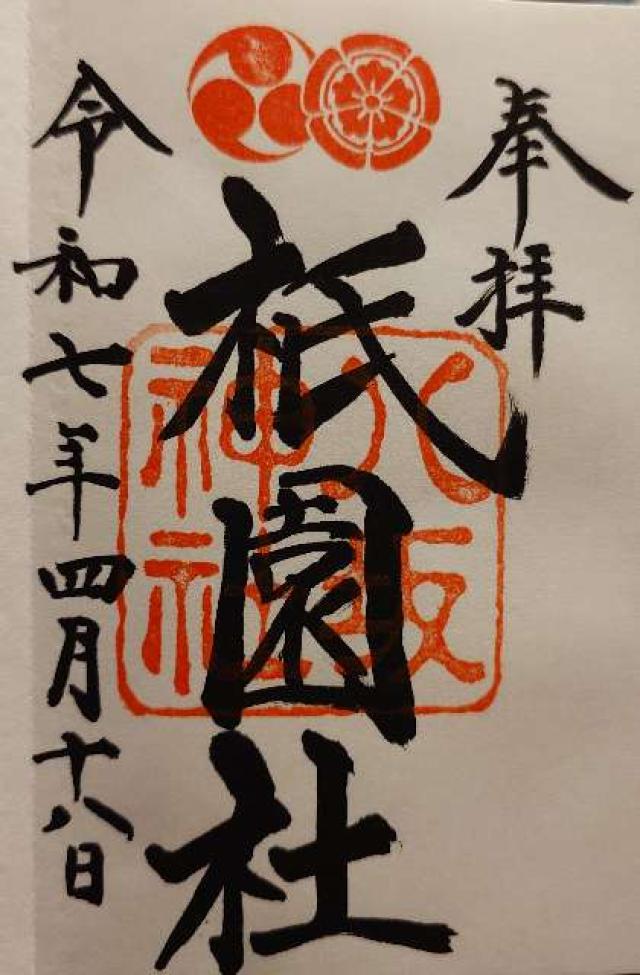 奉拝
祇園社
八坂
神社
令和七年四月十八日